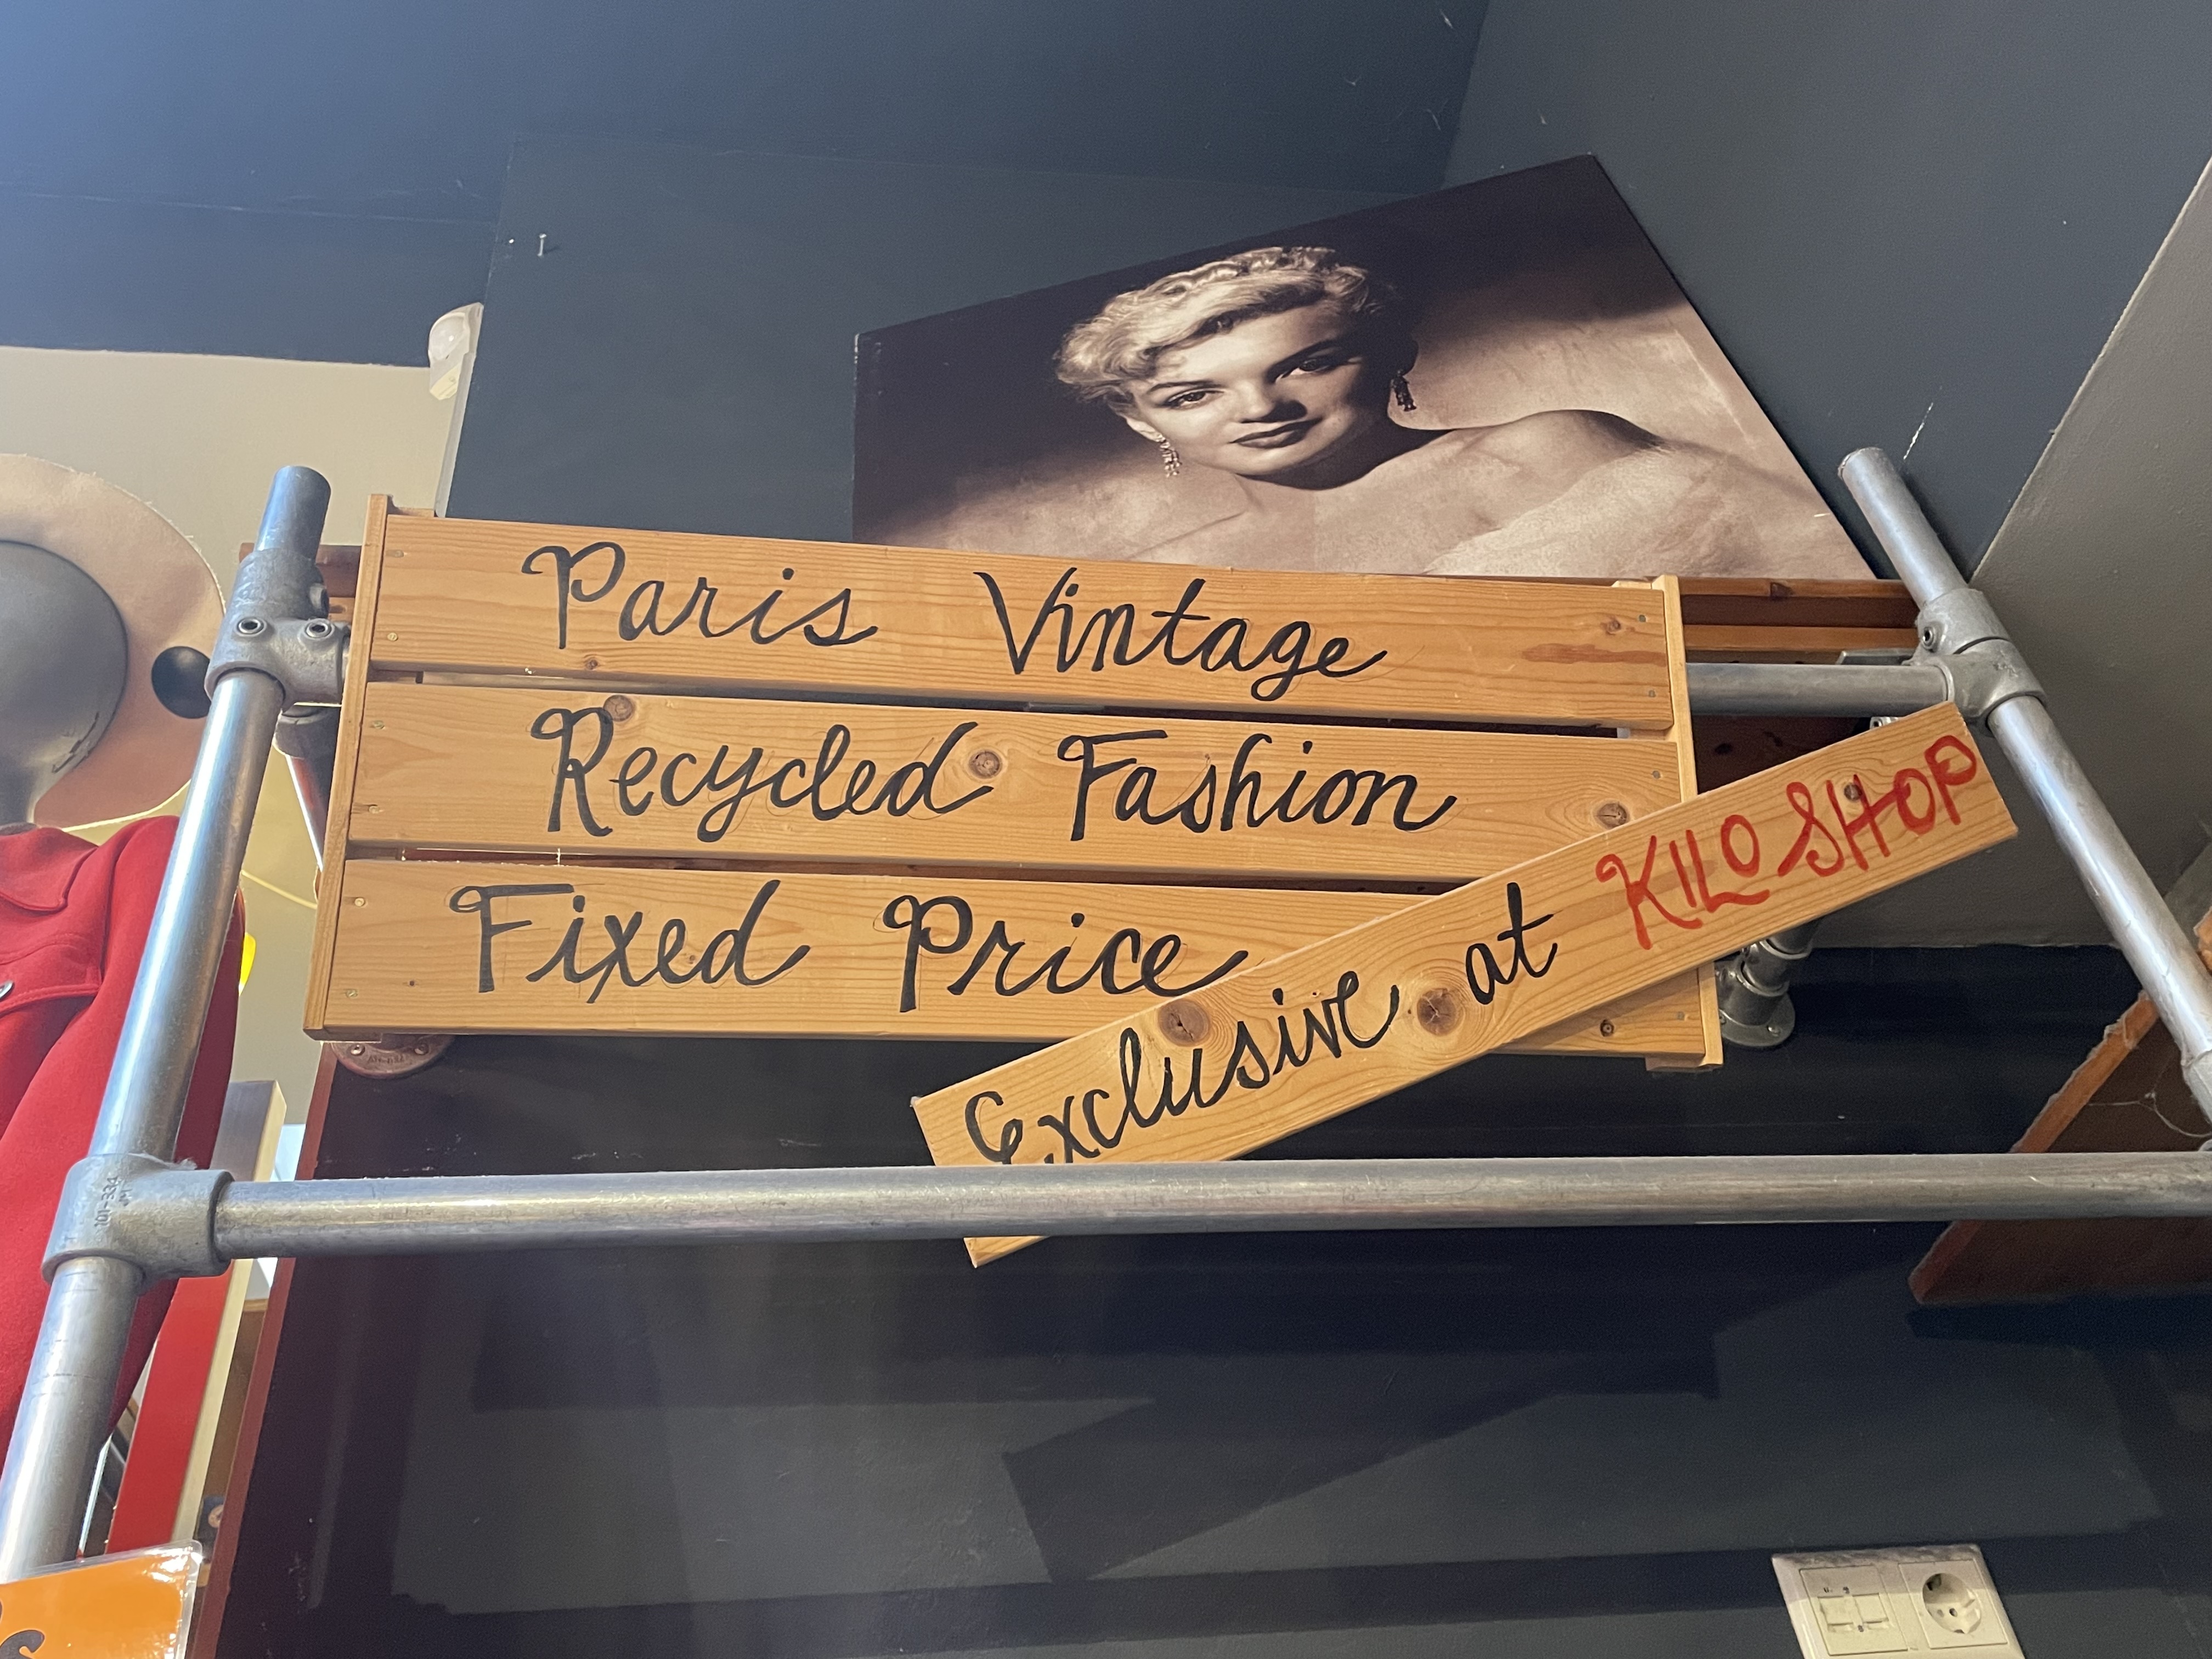 Paris Vintage
Recycled Fashion
Fixed Price
Exclusive at KILO SHOP